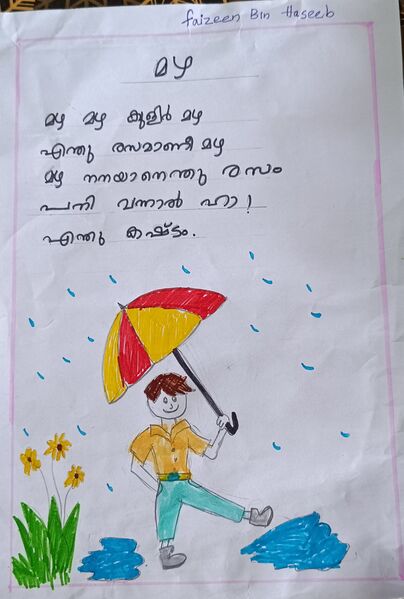 Faizeen Bin Haseeb
മഴ
മഴ മഴ കുളിർ മഴ
എന്തു രസമാണീ മഴ
മഴ നനയാനെന്തു രസം
പനി വന്നാൽ ഹാ!
എന്തു കഷ്ടം.